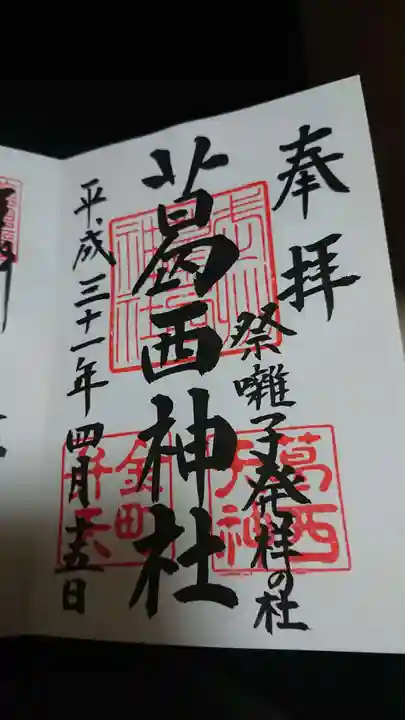 奉拝
祭囃子発祥の社
葛西神社
平成三十一年四月廿五日
葛西
大神
金町